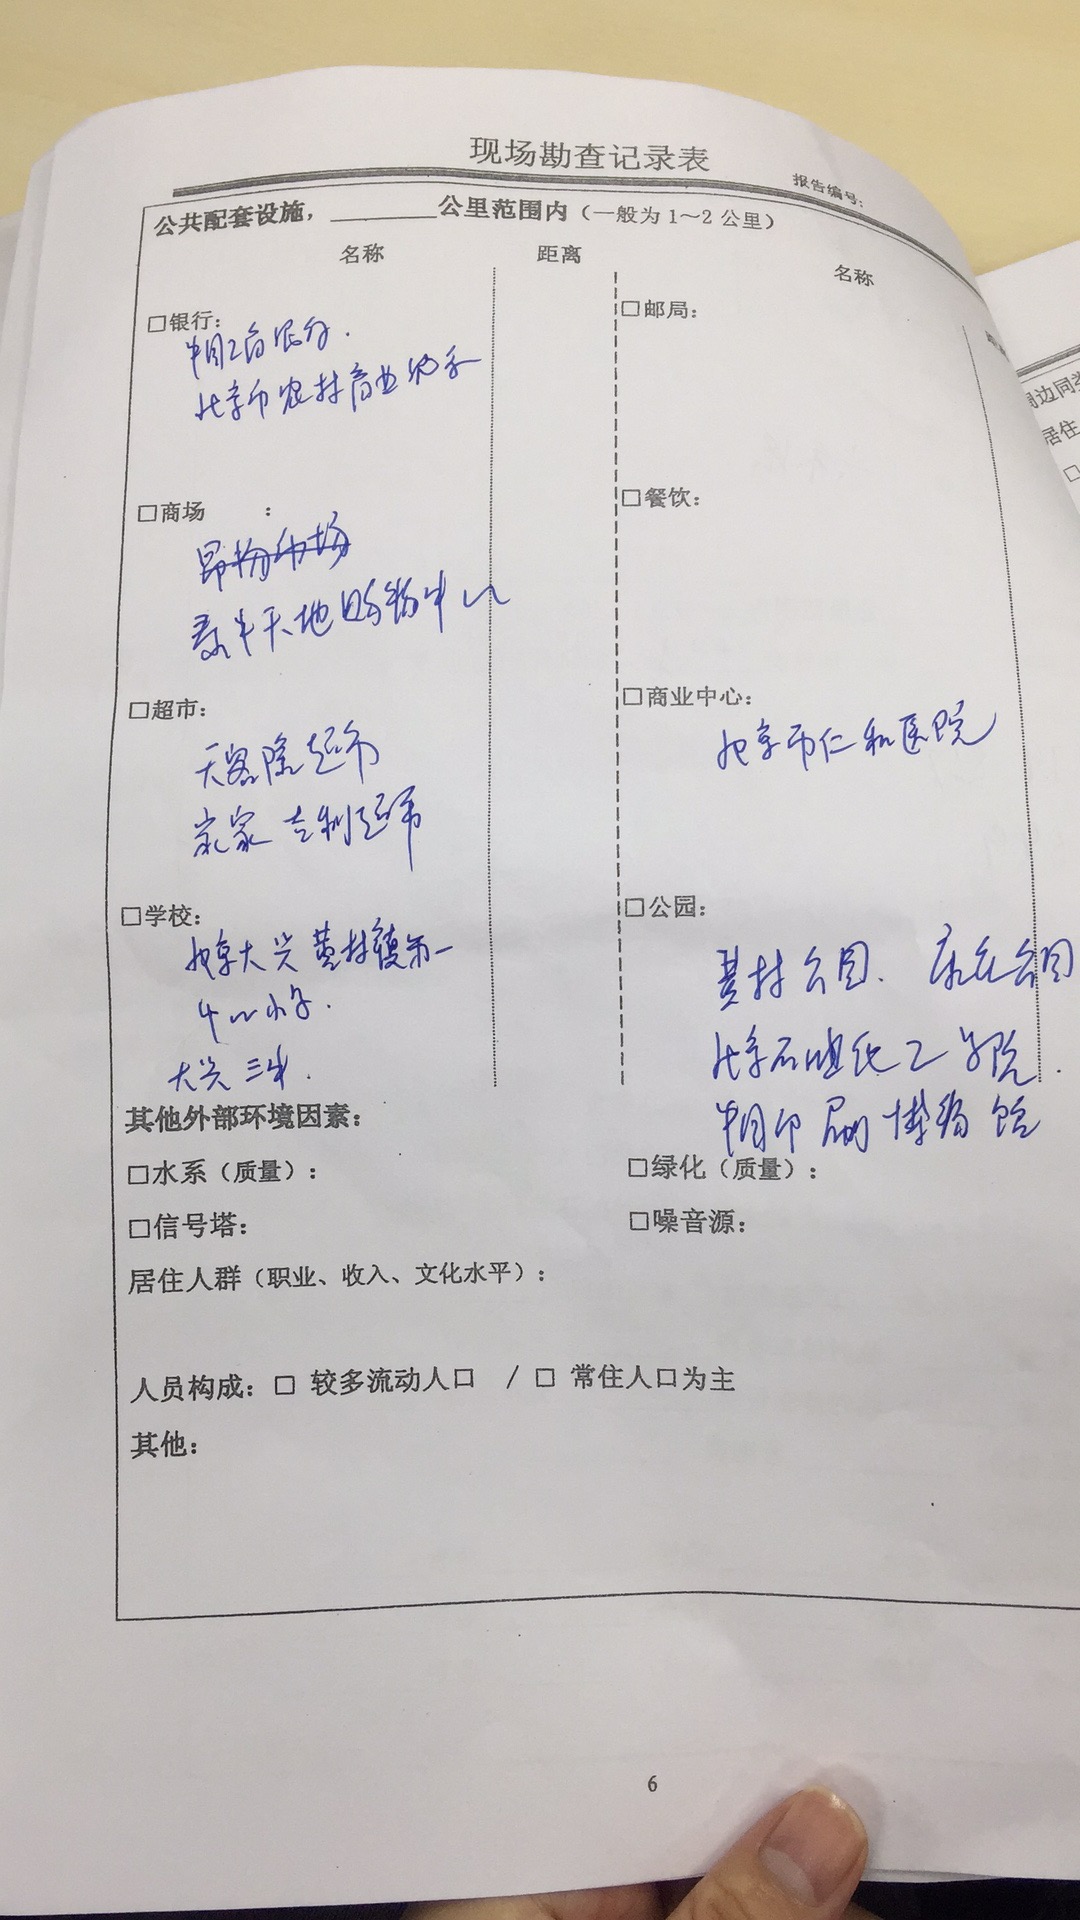 现场勘查记录表
报告编号:
公共配套设施，________公里范围内（一般为1～2公里）
名称 距离 名称
□银行:
中国工商银行.
北京市农村商业
□邮局:
□商场 :
市场
天地购物中心
□餐饮:
□超市:
天客隆超市
家 吉利超市
□商业中心:
北京市仁和医院
□学校:
北京大兴黄村镇第一
中心小学.
大兴三中.
□公园:
黄村公园、康庄公园
北京石油化工学院.
中国印刷博物馆
其他外部环境因素:
□水系（质量）:
□绿化（质量）:
□信号塔:
□噪音源:
居住人群（职业、收入、文化水平）:
人员构成: □ 较多流动人口 / □ 常住人口为主
其他:
6
周边同类
居住
□